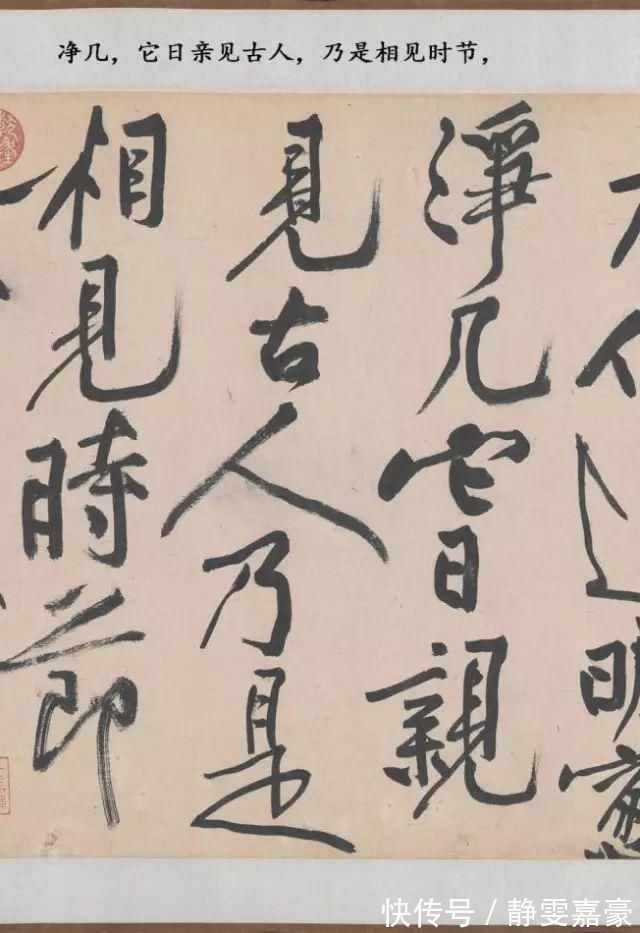 净几，它日亲见古人，乃是相见时节，
人伱邊明窻
淨几它日親
見古人乃是
相見時節
快传号／静雯嘉豪